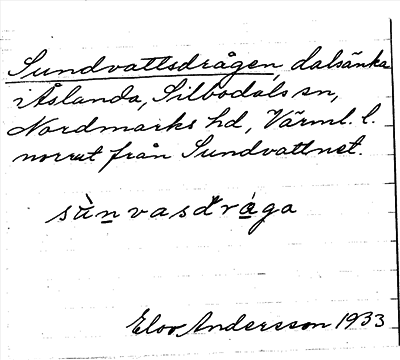 Sundvattsdrågen, dalsänka
i Åslanda, Silbodals sn,
Nordmarks hd, Värml. l.
norrut från Sundvattnet.
sùn̲vasdrå̲ga
Elov Andersson 1933